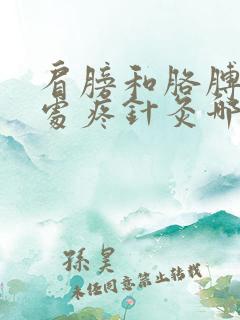 肩膀和胳膊
處疼針灸哪
孫昊
未经同意禁止转载